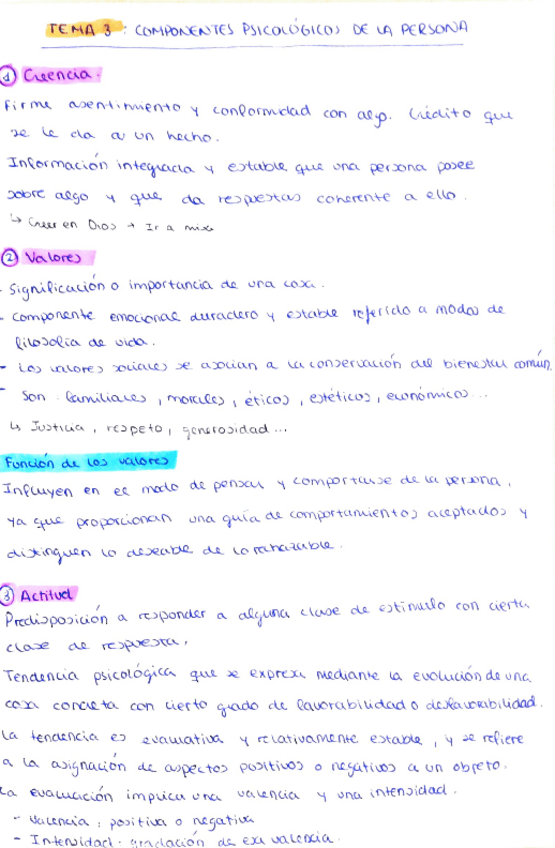 TEMA 3 : COMPONENTES PSICOLÓGICOS DE LA PERSONA
1 Creencia.
Firme asentimiento y conformidad con algo. Crédito que
se le da a un hecho.
Información integrada y estable que una persona posee
sobre algo y que da respuestas coherente a ello.
↳ Creer en Dios → Ir a misa
2 Valores
- Significación o importancia de una cosa.
- Componente emocional duradero y estable referido a modos de
filosofía de vida.
- Los valores sociales se asocian a la conservación del bienestar común.
- Son : familiares, morales, éticos, estéticos, económicos...
↳ Justicia, respeto, generosidad...
Función de los valores
Influyen en el modo de pensar y comportarse de la persona,
ya que proporcionan una guía de comportamientos aceptados y
distinguen lo deseable de lo rechazable.
3 Actitud
Predisposición a responder a alguna clase de estímulo con cierta
clase de respuesta.
Tendencia psicológica que se expresa mediante la evolución de una
cosa concreta con cierto grado de favorabilidad o desfavorabilidad.
La tendencia es evaluativa y relativamente estable, y se refiere
a la asignación de aspectos positivos o negativos a un objeto.
La evaluación implica una valencia y una intensidad.
- Valencia : positiva o negativa
- Intensidad : gradación de esa valencia.